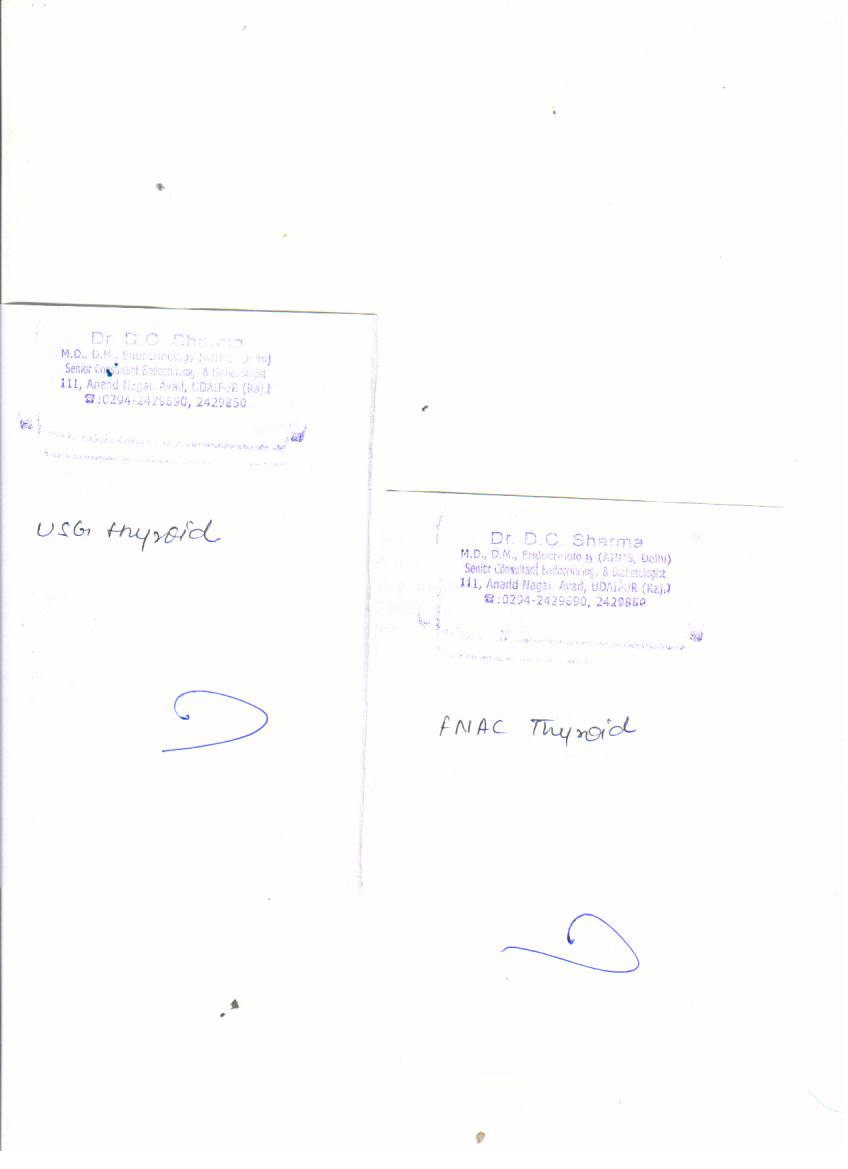 Dr. D.C. Sharma
M.D., D.M., Endocrinology (AIIMS, Delhi)
Senior Consultant Endocrinolog, & Diabetologist
111, Anand Nagar, Ayad, UDAIPUR (Raj.)
☎:0294-2429690, 2429850
USG thyroid
Dr. D.C. Sharma
M.D., D.M., Endocrinology (AIIMS, Delhi)
Senior Consultant Endocrinolog, & Diabetologist
111, Anand Nagar, Ayad, UDAIPUR (Raj.)
☎:0294-2429690, 2429850
FNAC Thyroid